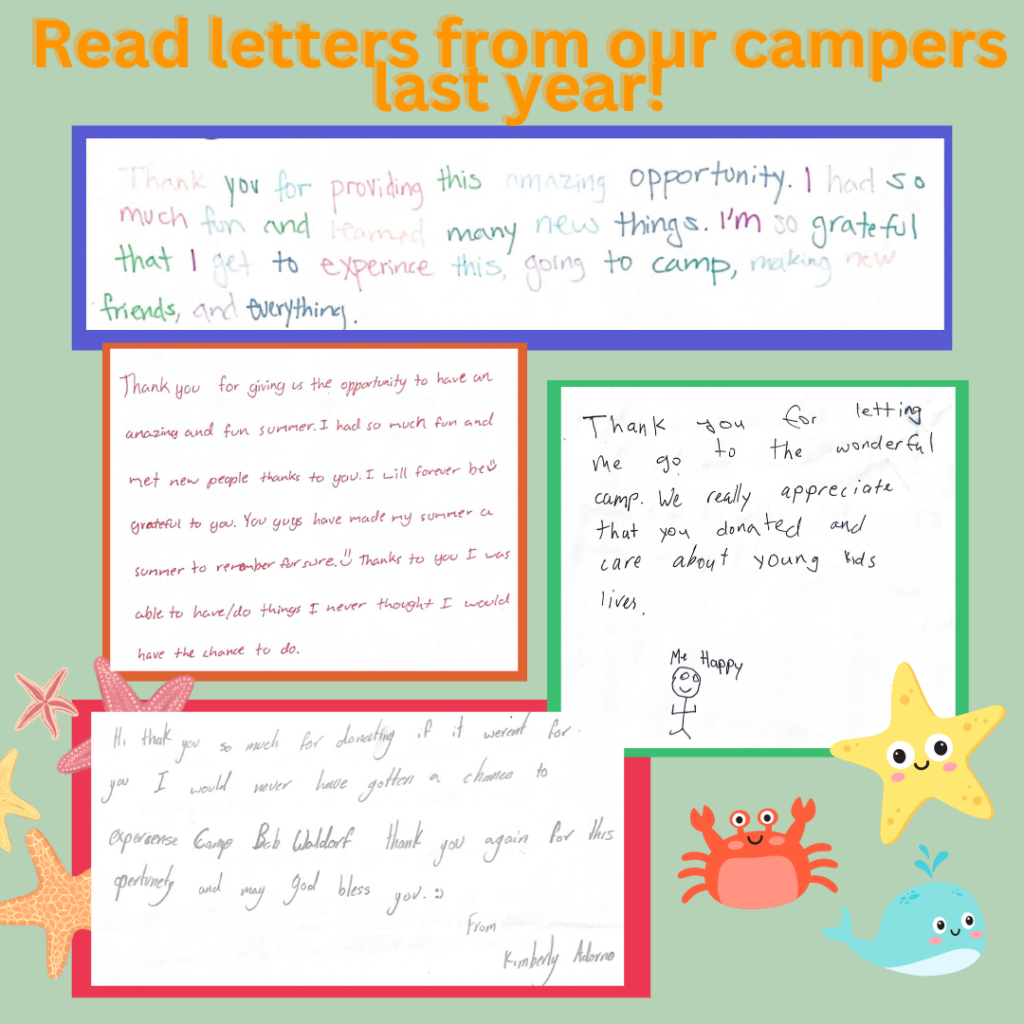 Read letters from our campers
last year!
Thank you for providing this amazing opportunity. I had so
much fun and learned many new things. I'm so grateful
that I get to experince this, going to camp, making new
friends, and everything.
Thank you for giving us the opportunity to have an
amazing and fun summer. I had so much fun and
met new people thanks to you. I will forever be
grateful to you. You guys have made my summer a
summer to remember for sure. Thanks to you I was
able to have/do things I never thought I would
have the chance to do.
Thank you for letting
me go to the wonderful
camp. We really appreciate
that you donated and
care about young kids
lives.
Me Happy
Hi thak you so much for donating if it werent for
you I would never have gotten a chance to
experiense Camp Bob Waldorf thank you again for this
opertunety and may god bless you. :)
From
Kimberly Adorno